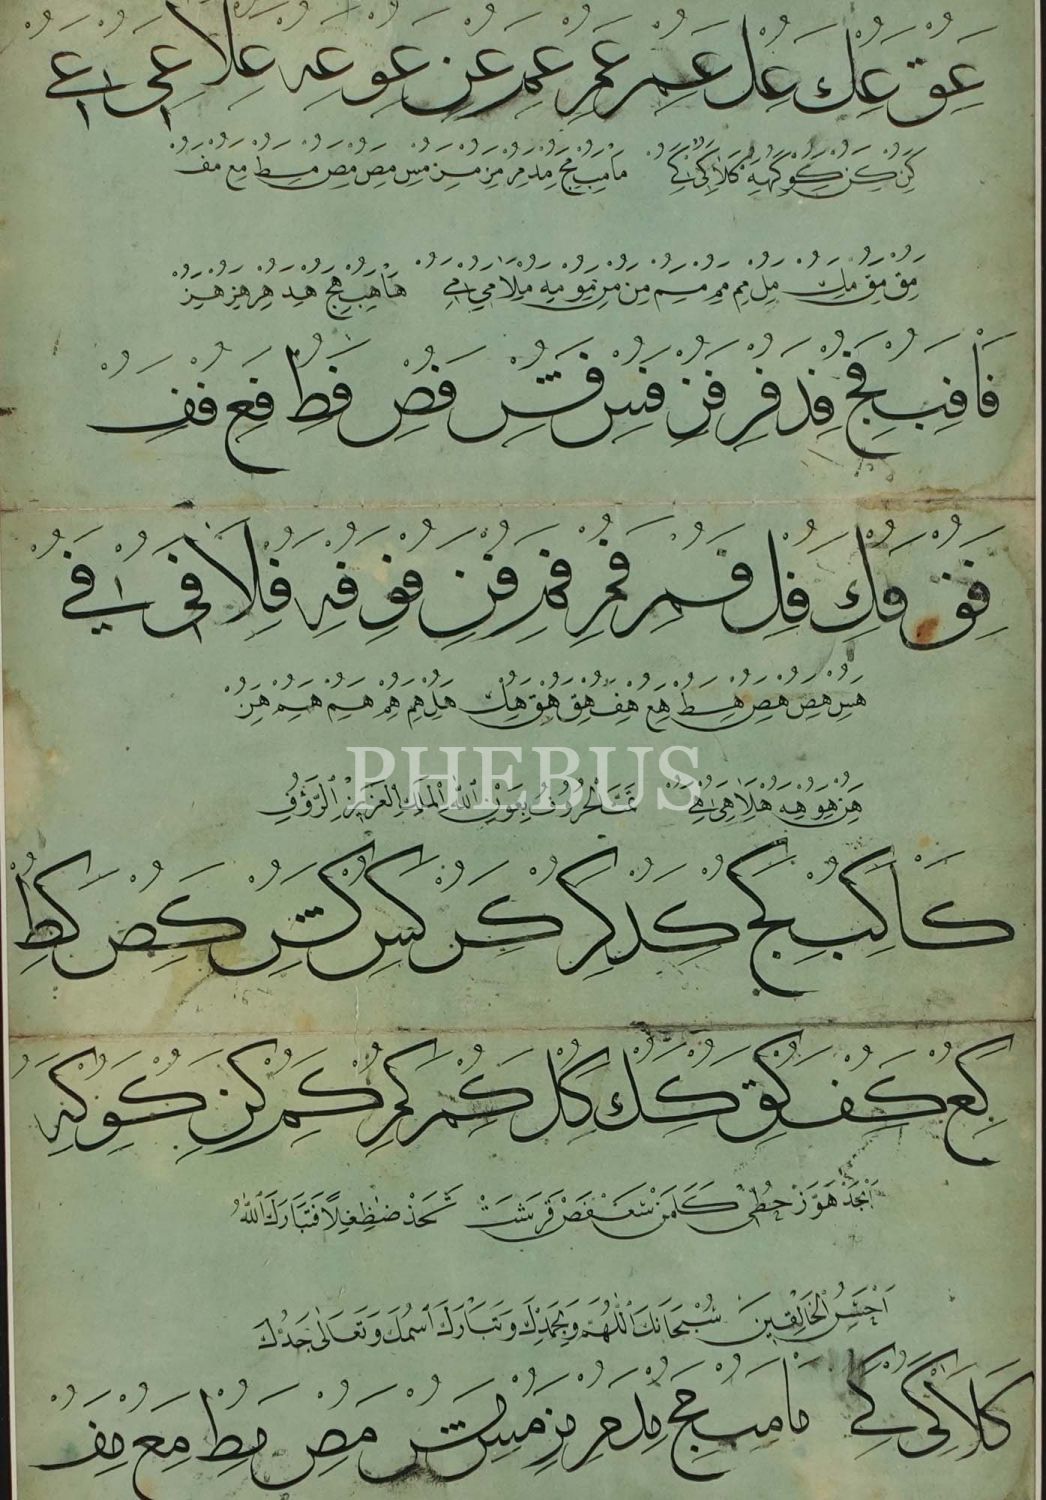 عق عك عل عمر عمر عمر عن عو عه علا عى عي
كن كن كو كهه كلا كى كي ما مب مج مد مر مز من مس مص مص مط مع مف
مق مق مك مل مم مم مم من من مو مه ملا مى مي ها هب هج هد هر هز هز
فا فب فج فد فر فز فس فش فص فط فع فف
فق فك فل فمر فمر فمر فن فو فه فلا فى في
هس هص هص هط هع هف هق هق هك هل هم هم هم هم هن
هن هو هه هلا هى هي تمت الحروف بعون الله الملك العزيز الرؤف
PHEBUS
كا كب كج كد كر كن كس كش كص كط
كع كف كق كك كل كمر كمر كم كن كو كه
اَبْجَدْ هَوَّزْ حُطِّى كَلَمَنْ سَعْفَصْ قَرَشَتْ ثَخَذْ ضَظِغِلًا فَتَبَارَكَ اللّٰهُ
اَحْسَنُ الْخَالِقِينَ سُبْحَانَكَ اللّٰهُمَّ وَبِحَمْدِكَ وَتَبَارَكَ اسْمُكَ وَتَعَالٰى جَدُّكَ
كلا كى كي ما مب مج مد مر مز مس مش مص مط مع مف